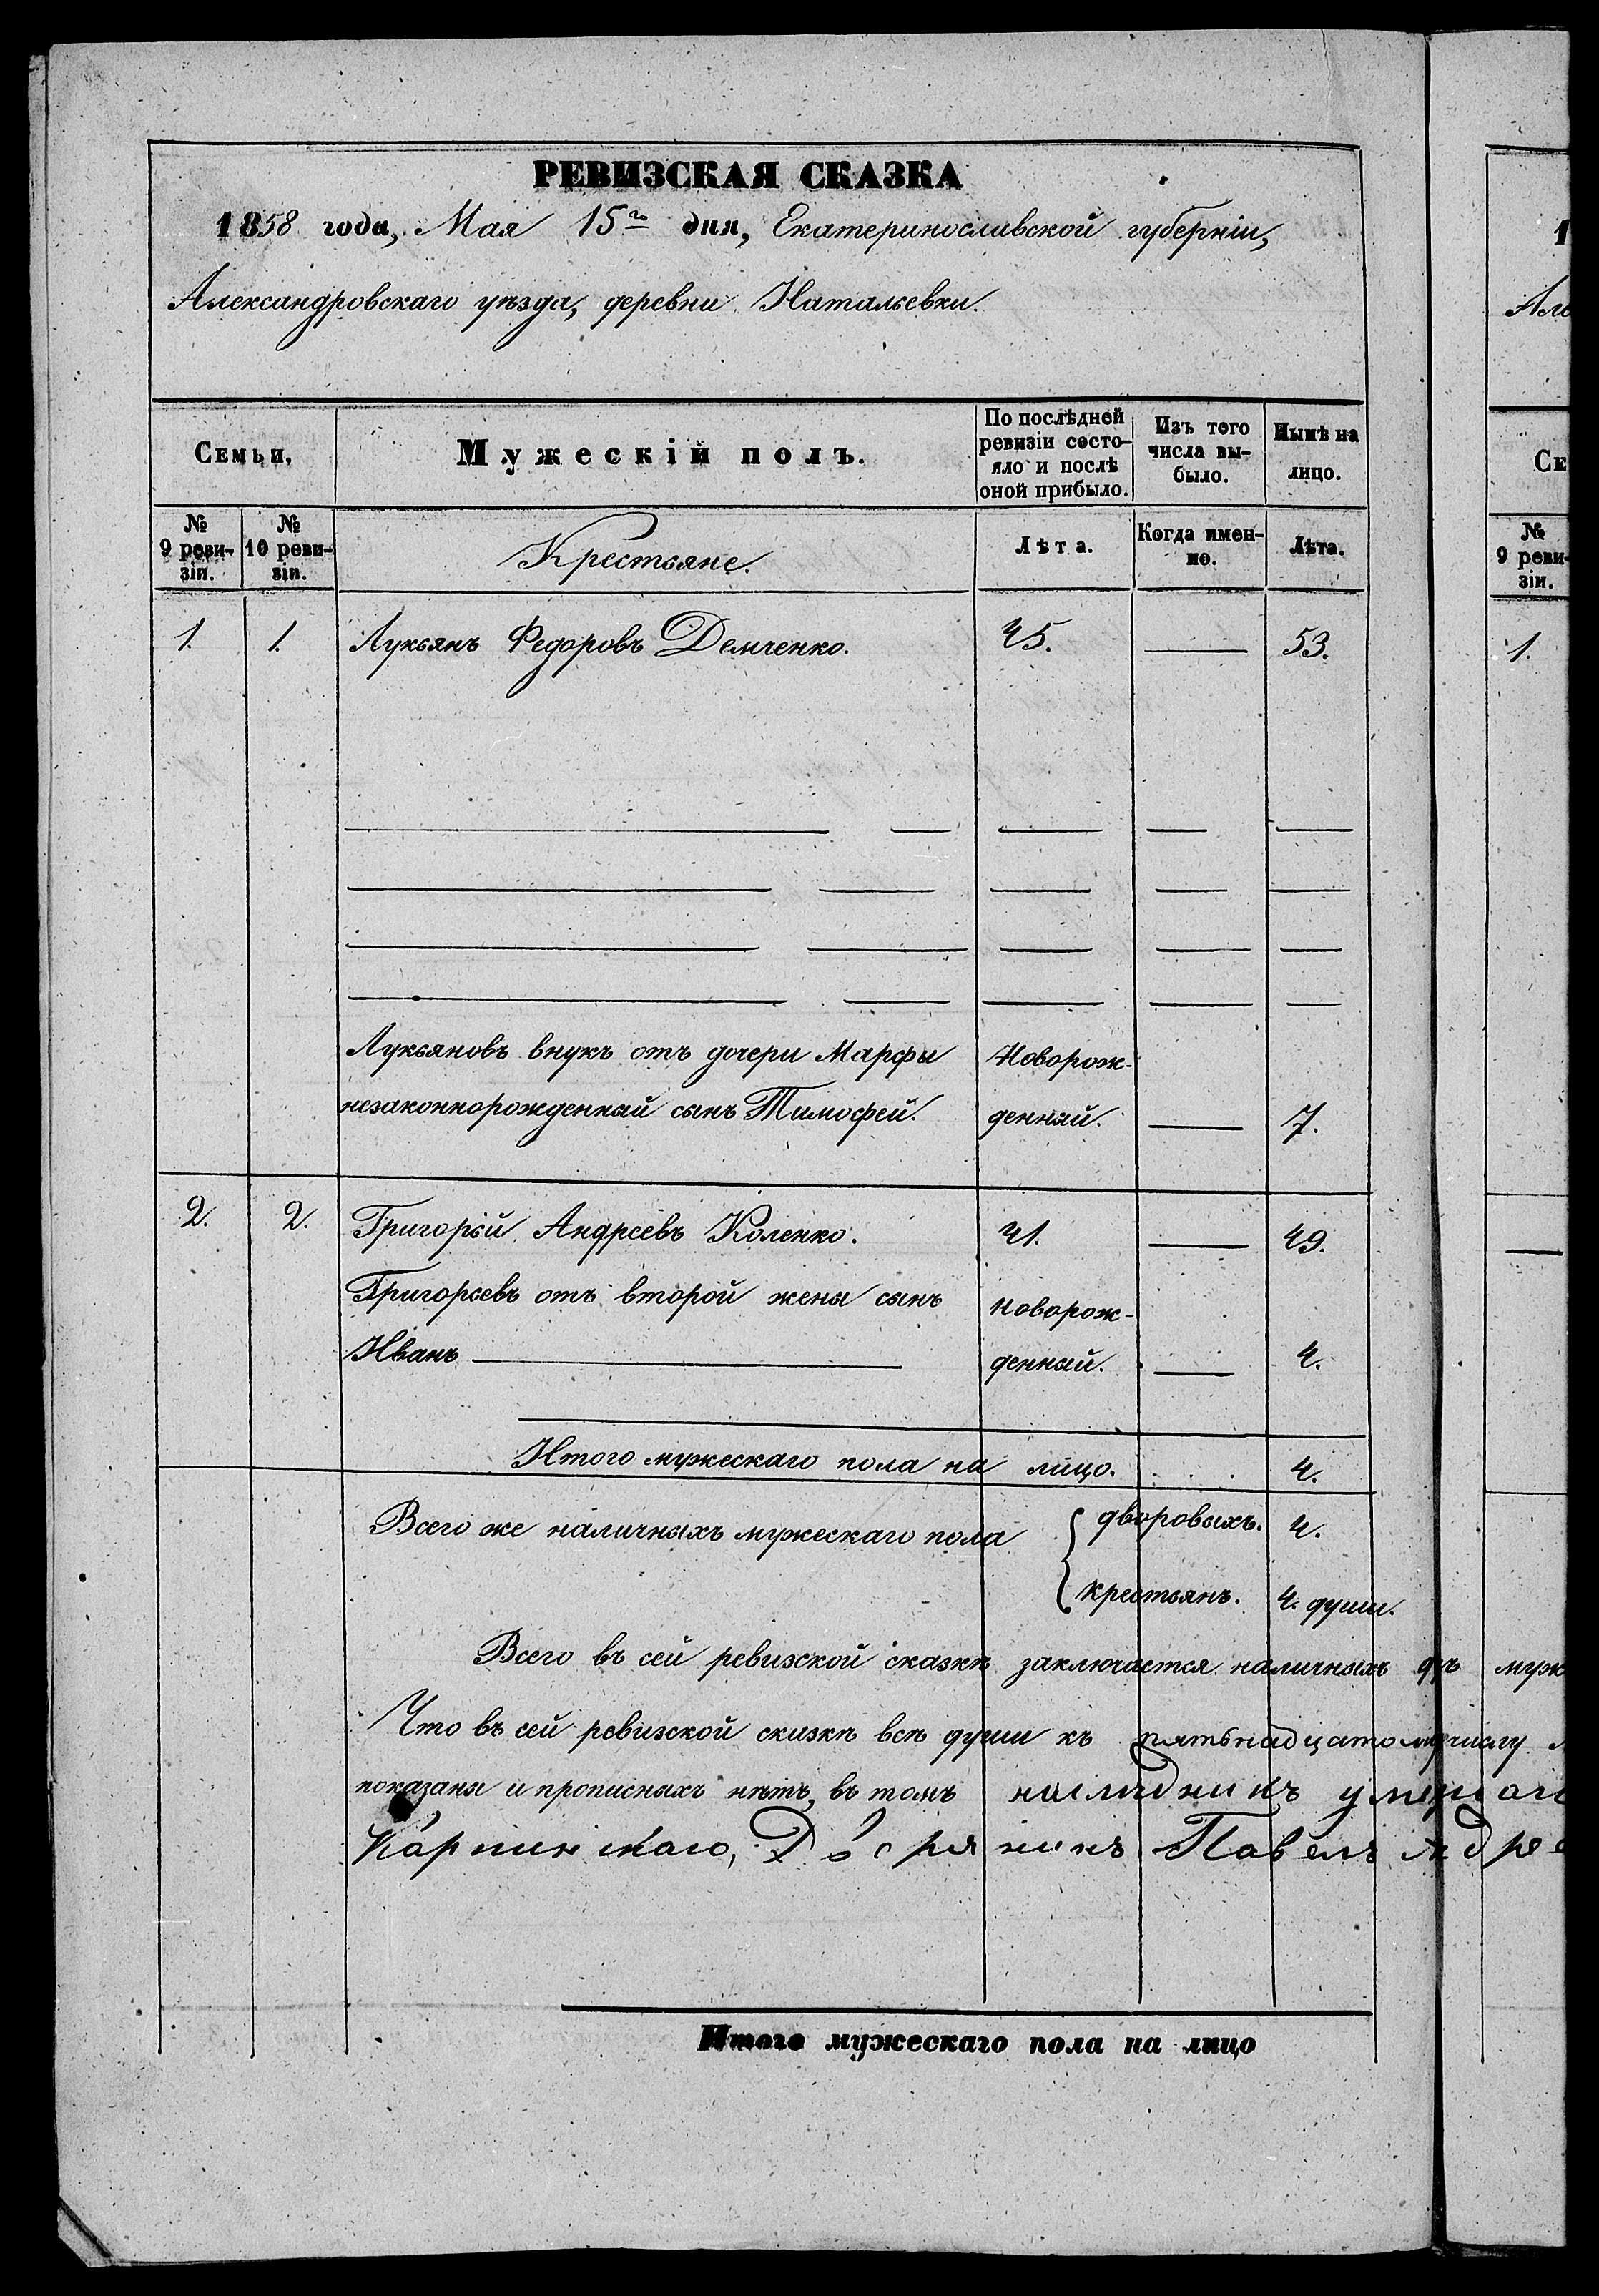 РЕВИЗСКАЯ СКАЗКА
1858 года, Мая 15го дня, Екатеринославской губерніи,
Александровскаго уѣзда, деревни Натальевки.
Семьи.
Мужескій полъ.
По послѣдней ревизіи состо-
яло и послѣ
оной прибыло.
Изъ того
числа вы-
было.
Нынѣ на
лицо.
№
9 реви-
зіи.
№
10 реви-
зіи.
Крестьяне.
Лѣта.
Когда имен-
но.
Лѣта.
1. 1. Лукьянъ Федоровъ Демченко. 45. 53.
Лукьяновъ внукъ отъ дочери Марфы Новорож-
незаконнорожденный сынъ Тимофей. денный. 7.
2. 2. Григорій Андреевъ Коленко. 41. 49.
Григорьевъ отъ второй жены сынъ новорож-
Иванъ денный. 4.
Итого мужескаго пола на лицо. 4.
Всего же наличныхъ мужескаго пола дворовыхъ. 4.
крестьянъ. 4. души.
Всего въ сей ревизской сказкѣ заключается наличныхъ муж
Что въ сей ревизской сказкѣ всѣ души къ пятьнадцатому числу
показаны и прописныхъ нѣтъ, въ томъ наслѣдникъ
Дворянинъ Павелъ
Итого мужескаго пола на лицо
1
Але
Се
№
9 реви-
зіи.
1.